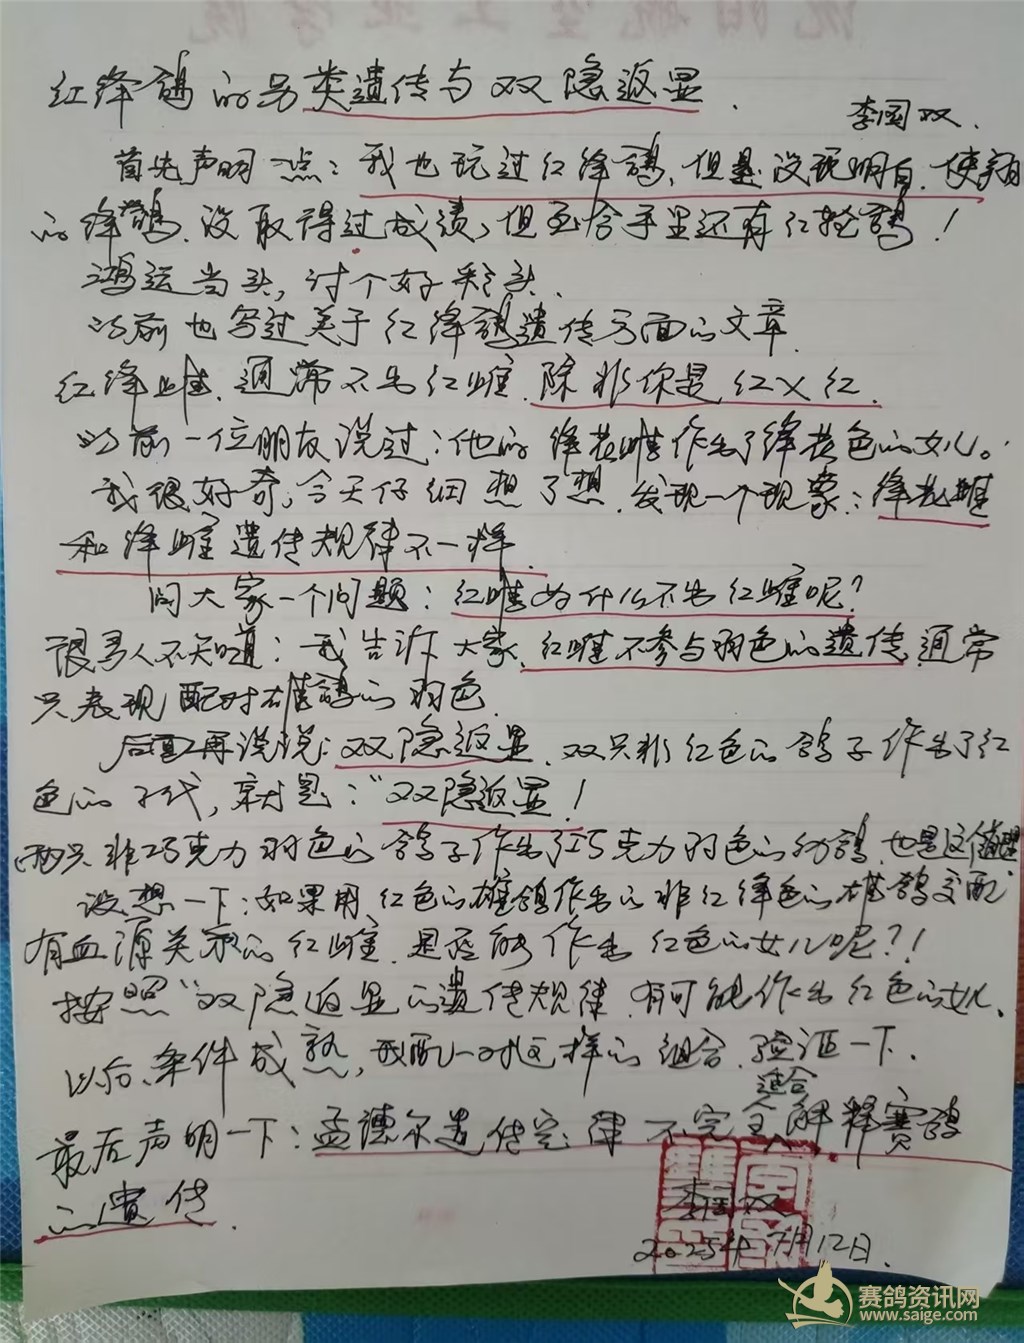 红绛鸽的另类遗传与双隐返显.
李国双.
首先声明一点:我也玩过红绛鸽,但是没玩明白.使翔
的绛鸽.没取得过成绩,但至今手里还有红轮鸽!
鸿运当头,讨个好彩头.
以前也写过关于红绛鸽遗传方面的文章.
红绛雌.通常不出红雌.除非你是红×红.
以前一位朋友说过:他的绛花雌作出了绛花色的女儿。
我很好奇,今天仔细想了想.发现一个现象:绛花雌
和绛雌遗传规律不一样.
问大家一个问题:红雌为什么不出红雌呢?
很多人不知道:我告诉大家.红雌不参与羽色的遗传,通常
只表现配对雄鸽的羽色.
后面再说说:双隐返显.双只非红色的鸽子作出了红
色的子代,就是:"双隐返显!
两只非巧克力羽色的鸽子作出了巧克力羽色的幼鸽.也是这个道理
设想一下:如果用红色的雄鸽作出的非红绛色的雄鸽交配
有血源关系的红雌.是否能作出红色的女儿呢?!
按照"双隐返显的遗传规律.有可能作出红色的女儿.
以后、条件成熟,我配一对这样的组合.验证一下.
适合
最后声明一下:孟德尔遗传定律不完全解释赛鸽
的遗传.
李国双
2025年7月12日.
赛鸽资讯网
www.saige.com